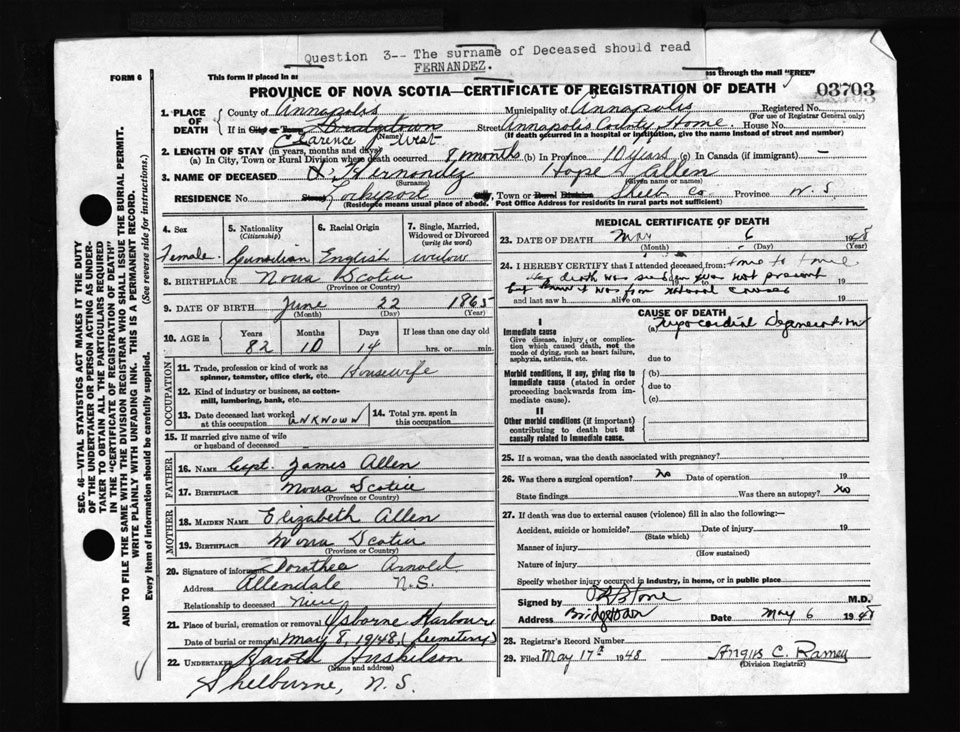 Question 3-- The surname of Deceased should read
FERNANDEZ.
FORM 6
This form if placed in
ss through the mail "FREE"
PROVINCE OF NOVA SCOTIA—CERTIFICATE OF REGISTRATION OF DEATH
03703
1. PLACE OF DEATH County of Annapolis Municipality of Annapolis Registered No.
(For use of Registrar General only)
If in City or Town Bridgetown Street Annapolis County Home House No.
(Name) (If death occurred in a hospital or institution, give the name instead of street and number)
Clarence West
2. LENGTH OF STAY (in years, months and days)
(a) In City, Town or Rural Division where death occurred 8 months (b) In Province 10 years (c) In Canada (if immigrant) —
3. NAME OF DECEASED Hope Allen
(Surname) (Given name or names)
RESIDENCE No. Street Lockeport City, Town or Rural Division Shelb Co Province N.S
(Residence means usual place of abode. Post Office Address for residents in rural parts not sufficient)
4. Sex 5. Nationality (Citizenship) 6. Racial Origin 7. Single, Married, Widowed or Divorced (write the word)
Female Canadian English widow
8. BIRTHPLACE Nova Scotia
(Province or Country)
9. DATE OF BIRTH June 22 1865
(Month) (Day) (Year)
10. AGE in Years Months Days If less than one day old
82 10 14 hrs. or min.
OCCUPATION
11. Trade, profession or kind of work as spinner, teamster, office clerk, etc. Housewife
12. Kind of industry or business, as cotton-mill, lumbering, bank, etc.
13. Date deceased last worked at this occupation UNKNOWN 14. Total yrs. spent in this occupation
15. If married give name of wife or husband of deceased
FATHER
16. NAME Capt. James Allen
17. BIRTHPLACE Nova Scotia
(Province or Country)
MOTHER
18. MAIDEN NAME Elizabeth Allen
19. BIRTHPLACE Nova Scotia
(Province or Country)
20. Signature of informant Dorothea Arnold
Address Allendale N.S.
Relationship to deceased niece
21. Place of burial, cremation or removal Osborne Harbour
Date of burial or removal May 8, 1948 (Cemetery)
22. UNDERTAKER Harold Huskilson
(Name and address)
Shelburne, N.S.
MEDICAL CERTIFICATE OF DEATH
23. DATE OF DEATH May 6 1948
(Month) (Day) (Year)
24. I HEREBY CERTIFY that I attended deceased from: time to time
death was sudden was not present 19
but know it was from natural causes
and last saw h alive on 19
CAUSE OF DEATH
I
Immediate cause (a) Myocardial Degeneration
Give disease, injury or complication which caused death, not the mode of dying, such as heart failure, asphyxia, asthenia, etc.
due to
Morbid conditions, if any, giving rise to immediate cause (stated in order proceeding backwards from immediate cause).
(b)
due to
(c)
II
Other morbid conditions (if important) contributing to death but not causally related to immediate cause.
25. If a woman, was the death associated with pregnancy?
26. Was there a surgical operation? no Date of operation 19
State findings Was there an autopsy? no
27. If death was due to external causes (violence) fill in also the following:—
Accident, suicide or homicide? Date of injury 19
(State which)
Manner of injury
(How sustained)
Nature of injury
Specify whether injury occurred in industry, in home, or in public place
Signed by M.D.
Address Bridgetown Date May 6 1948
28. Registrar's Record Number
29. Filed May 17th 1948 Angus C. Ramey
(Division Registrar)
SEC. 46—VITAL STATISTICS ACT MAKES IT THE DUTY
OF THE UNDERTAKER OR PERSON ACTING AS UNDER-
TAKER TO OBTAIN ALL THE PARTICULARS REQUIRED
IN THE "CERTIFICATE OF REGISTRATION OF DEATH"
AND TO FILE THE SAME WITH THE DIVISION REGISTRAR WHO SHALL ISSUE THE BURIAL PERMIT.
WRITE PLAINLY WITH UNFADING INK. THIS IS A PERMANENT RECORD.
Every item of information should be carefully supplied. (See reverse side for instructions.)